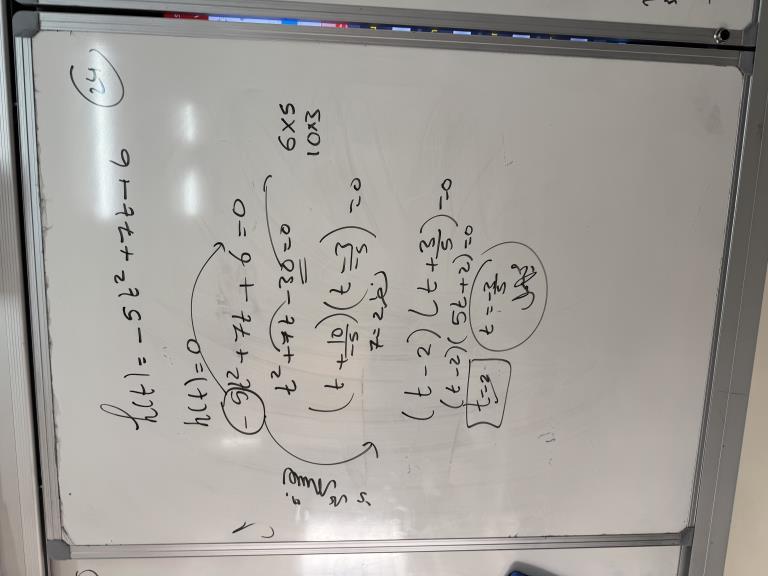 24
h(t) = -5t² + 7t + 6
h(t) = 0
-5t² + 7t + 6 = 0
t² + 7t - 30 = 0
6 x 5
10 x 3
(t + 10/-5)(t - 3/-5) = 0
(t - 2)(t + 3/5) = 0
(t - 2)(5t + 2) = 0
t = 2
t = -3/5